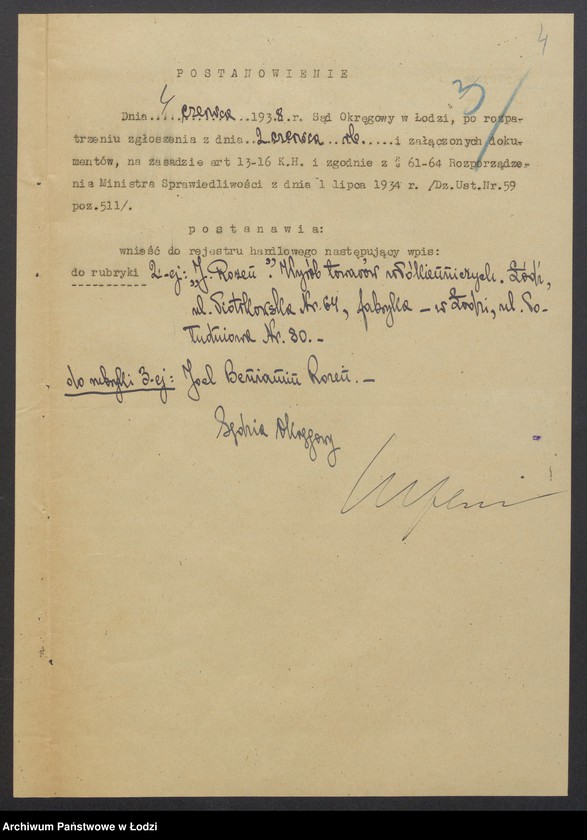 4
3/
POSTANOWIENIE
Dnia..4..czerwca..1938.r. Sąd Okręgowy w Łodzi, po rozpa-
trzeniu zgłoszenia z dnia..2 czerwca..rb.....i załączonych doku-
mentów, na zasadzie art 13-16 K.H. i zgodnie z §§ 61-64 Rozporządze-
nia Ministra Sprawiedliwości z dnia 1 lipca 1934 r. /Dz.Ust.Nr.59
poz.511/.
postanawia:
wnieść do rejestru handlowego następujący wpis:
do rubryki 2-ej: „J. Rozen". Wyrób towarów włókienniczych. Łódź,
ul. Piotrkowska Nr. 64, fabryka – w Łodzi, ul. Po-
łudniowa Nr. 80. –
do rubryki 3-ej: Joel Beniamin Rozen. –
Sędzia Okręgowy
Archiwum Państwowe w Łodzi